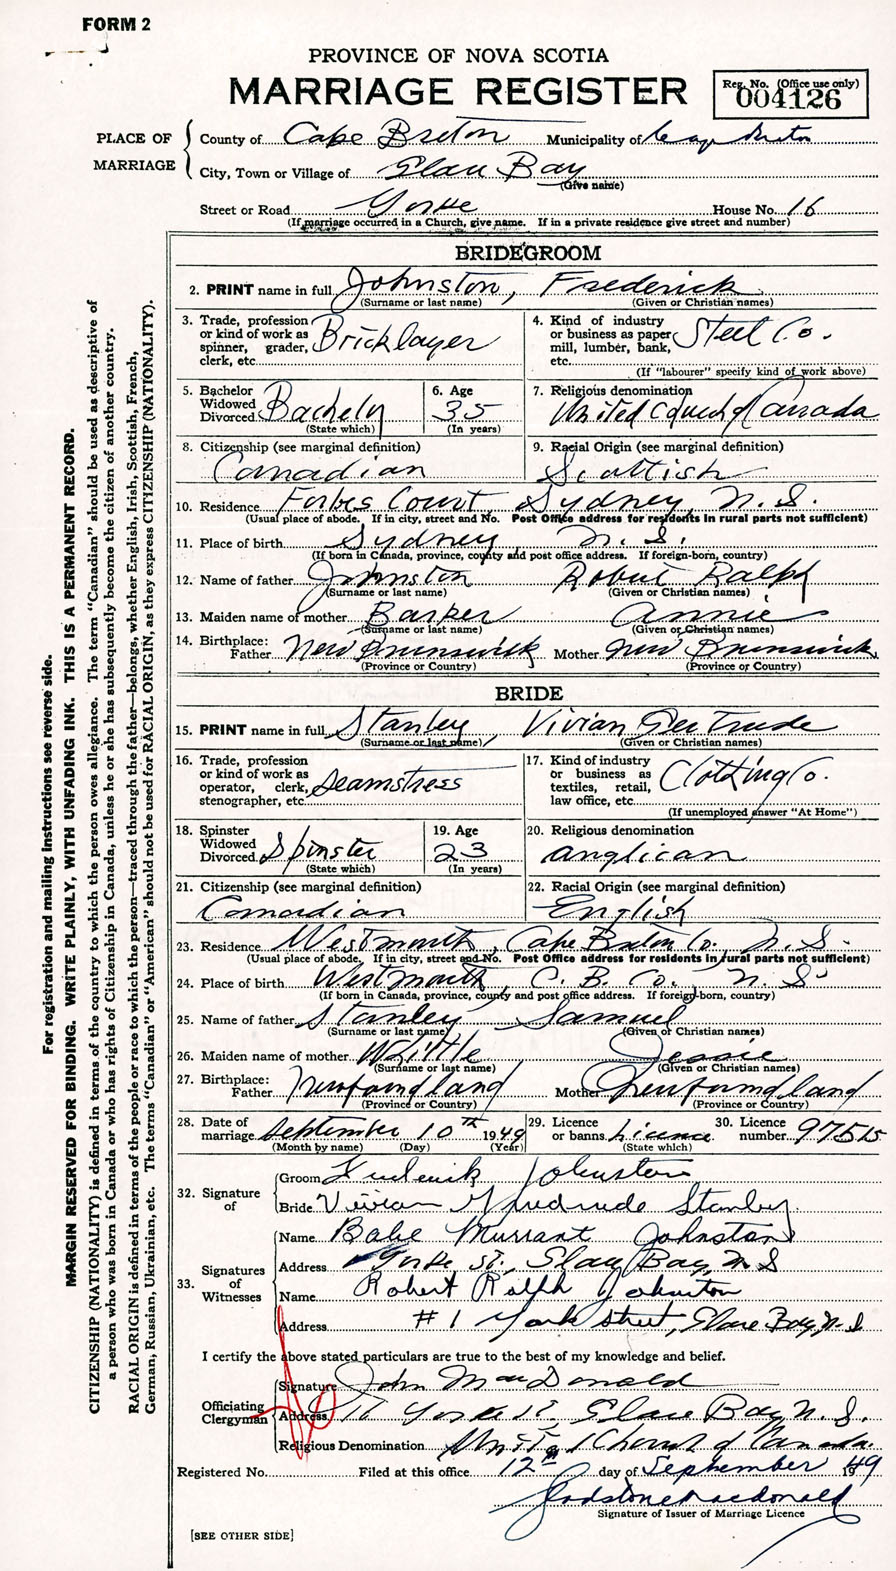 FORM 2
PROVINCE OF NOVA SCOTIA
MARRIAGE REGISTER
Reg. No. (Office use only)
004126
PLACE OF MARRIAGE
County of Cape Breton Municipality of Cape Breton
City, Town or Village of Glace Bay
(Give name)
Street or Road Yorke House No. 16
(If marriage occurred in a Church, give name. If in a private residence give street and number)
BRIDEGROOM
2. PRINT name in full Johnston, Frederick
(Surname or last name) (Given or Christian names)
3. Trade, profession or kind of work as spinner, grader, clerk, etc. Bricklayer
4. Kind of industry or business as paper mill, lumber, bank, etc. Steel Co.
(If "labourer" specify kind of work above)
5. Bachelor Widowed Divorced Bachelor
(State which)
6. Age 35
(In years)
7. Religious denomination United Church of Canada
8. Citizenship (see marginal definition) Canadian
9. Racial Origin (see marginal definition) Scottish
10. Residence Forbes Court, Sydney, N. S.
(Usual place of abode. If in city, street and No. Post Office address for residents in rural parts not sufficient)
11. Place of birth Sydney N. S.
(If born in Canada, province, county and post office address. If foreign-born, country)
12. Name of father Johnston Robert Ralph
(Surname or last name) (Given or Christian names)
13. Maiden name of mother Barker Annie
(Surname or last name) (Given or Christian names)
14. Birthplace: Father New Brunswick Mother New Brunswick
(Province or Country) (Province or Country)
BRIDE
15. PRINT name in full Stanley, Vivian Gertrude
(Surname or last name) (Given or Christian names)
16. Trade, profession or kind of work as operator, clerk, stenographer, etc. Seamstress
17. Kind of industry or business as textiles, retail, law office, etc. Clothing Co.
(If unemployed answer "At Home")
18. Spinster Widowed Divorced Spinster
(State which)
19. Age 23
(In years)
20. Religious denomination Anglican
21. Citizenship (see marginal definition) Canadian
22. Racial Origin (see marginal definition) English
23. Residence Westmouth, Cape Breton Co. N. S.
(Usual place of abode. If in city, street and No. Post Office address for residents in rural parts not sufficient)
24. Place of birth Westmouth, C. B. Co. N. S.
(If born in Canada, province, county and post office address. If foreign-born, country)
25. Name of father Stanley Samuel
(Surname or last name) (Given or Christian names)
26. Maiden name of mother Jessie
(Surname or last name) (Given or Christian names)
27. Birthplace: Father Newfoundland Mother Newfoundland
(Province or Country) (Province or Country)
28. Date of marriage September 10th 1949
(Month by name) (Day) (Year)
29. Licence or banns Licence
(State which)
30. Licence number 97515
32. Signature of
Groom Frederick Johnston
Bride Vivian Gertrude Stanley
33. Signatures of Witnesses
Name Babe Murrant Johnston
Address Yorke St., Glace Bay, N S
Name Robert Ralph Johnston
Address # 1 York Street, Glace Bay, N. S
I certify the above stated particulars are true to the best of my knowledge and belief.
Officiating Clergyman
Signature John MacDonald
Address 16 Yorke St, Glace Bay N. S.
Religious Denomination United Church of Canada.
Registered No. Filed at this office 12th day of September 1949
Gladstone Macdonald
Signature of Issuer of Marriage Licence
[SEE OTHER SIDE]
For registration and mailing instructions see reverse side.
MARGIN RESERVED FOR BINDING. WRITE PLAINLY, WITH UNFADING INK. THIS IS A PERMANENT RECORD.
CITIZENSHIP (NATIONALITY) is defined in terms of the country to which the person owes allegiance. The term "Canadian" should be used as descriptive of
a person who was born in Canada or who has rights of Citizenship in Canada, unless he or she has subsequently become the citizen of another country.
RACIAL ORIGIN is defined in terms of the people or race to which the person—traced through the father—belongs, whether English, Irish, Scottish, French,
German, Russian, Ukrainian, etc. The terms "Canadian" or "American" should not be used for RACIAL ORIGIN, as they express CITIZENSHIP (NATIONALITY).